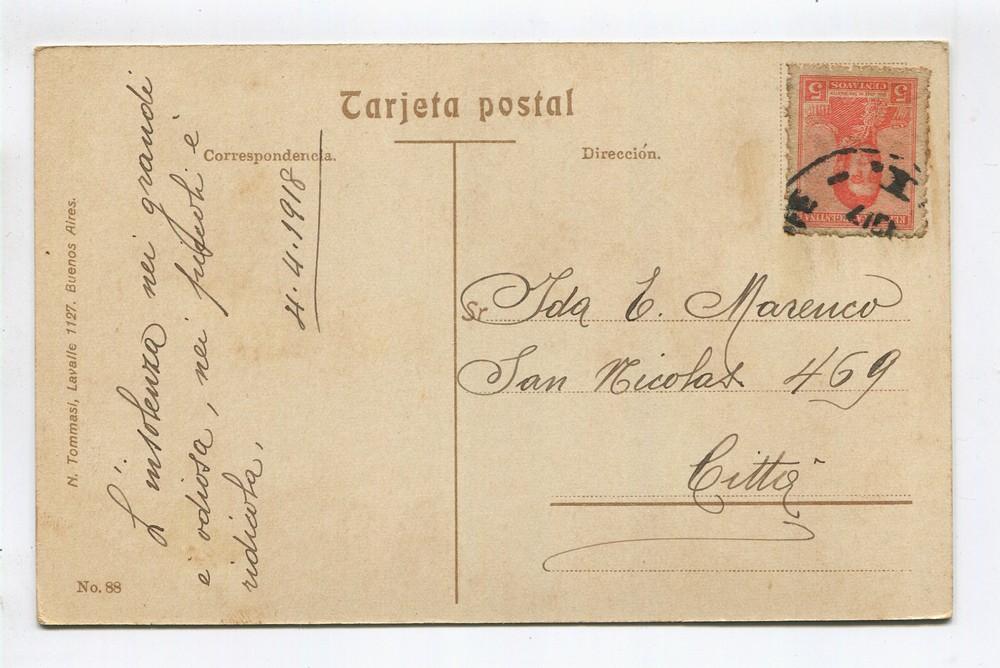 Tarjeta postal
Correspondencia.
Dirección.
L'insolenza nei grandi
è odiosa, nei piccoli è
ridicola.
4.4.1918
N. Tommasi, Lavalle 1127. Buenos Aires.
No. 88
5 5
CENTAVOS
Sr Ida E. Marenco
San Nicolas 469
Città